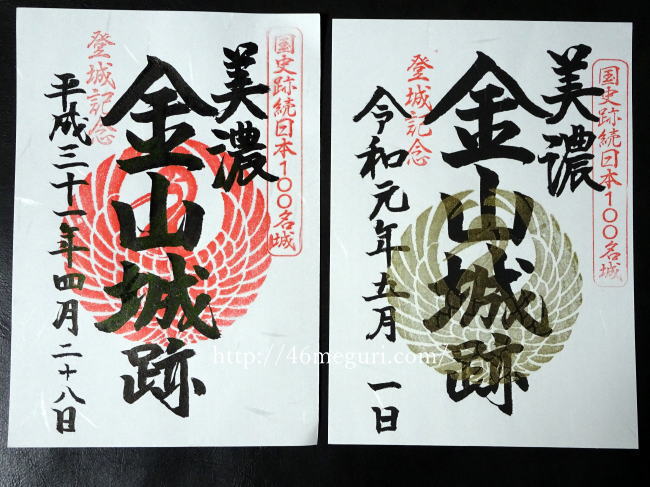 国史跡続日本100名城
美濃
金山城跡
登城記念
平成三十一年四月二十八日
国史跡続日本100名城
美濃
金山城跡
登城記念
令和元年五月一日
http://46meguri.com/